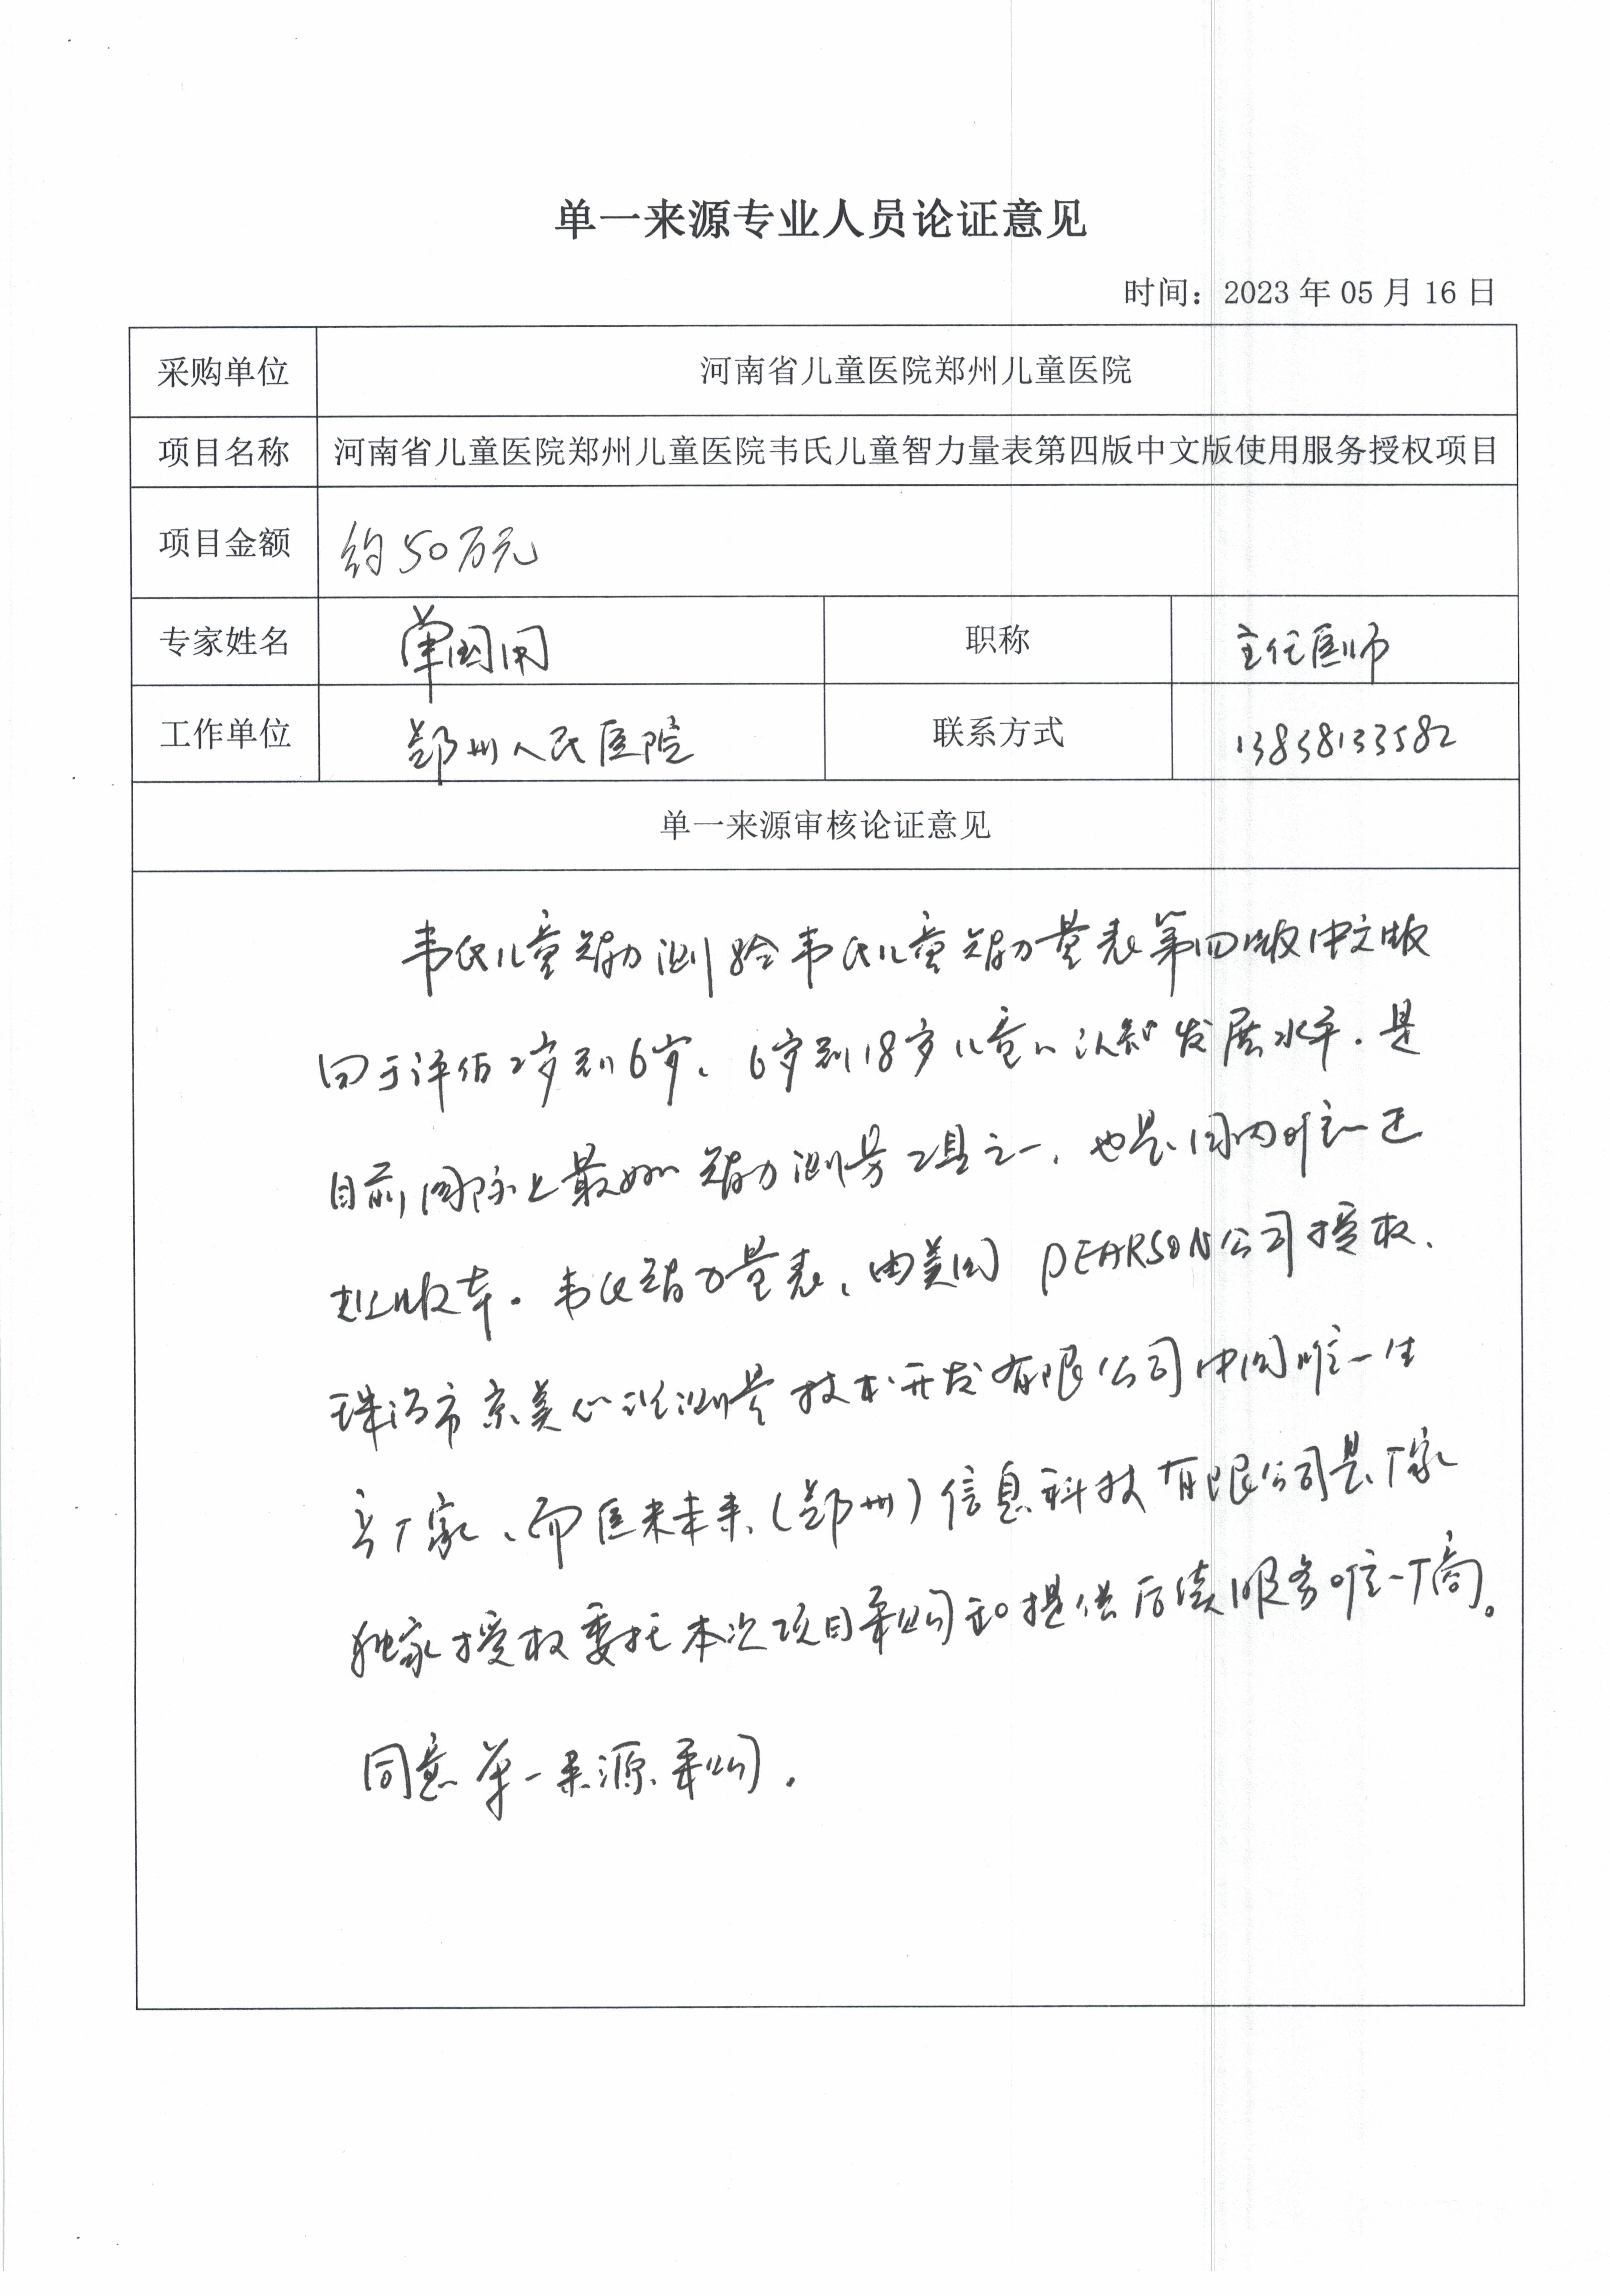 单一来源专业人员论证意见
时间：2023 年 05 月 16 日
采购单位 河南省儿童医院郑州儿童医院
项目名称 河南省儿童医院郑州儿童医院韦氏儿童智力量表第四版中文版使用服务授权项目
项目金额 约50万元
专家姓名 单国用 职称 主任医师
工作单位 郑州人民医院 联系方式 13838133582
单一来源审核论证意见
韦氏儿童智力测验韦氏儿童智力量表第四版中文版
用于评估2岁到6岁、6岁到18岁儿童的认知发展水平.是
目前国际上最好的智力测量工具之一，也是国内唯一正
版。韦氏智力量表，由美国PEARSON公司授权、
珠海市京美心理测量技术开发有限公司中国唯一生
产厂家、而医来未来(郑州)信息科技有限公司是厂家
独家授权委托本次项目采购和提供后续服务唯一厂商。
同意单一来源采购.